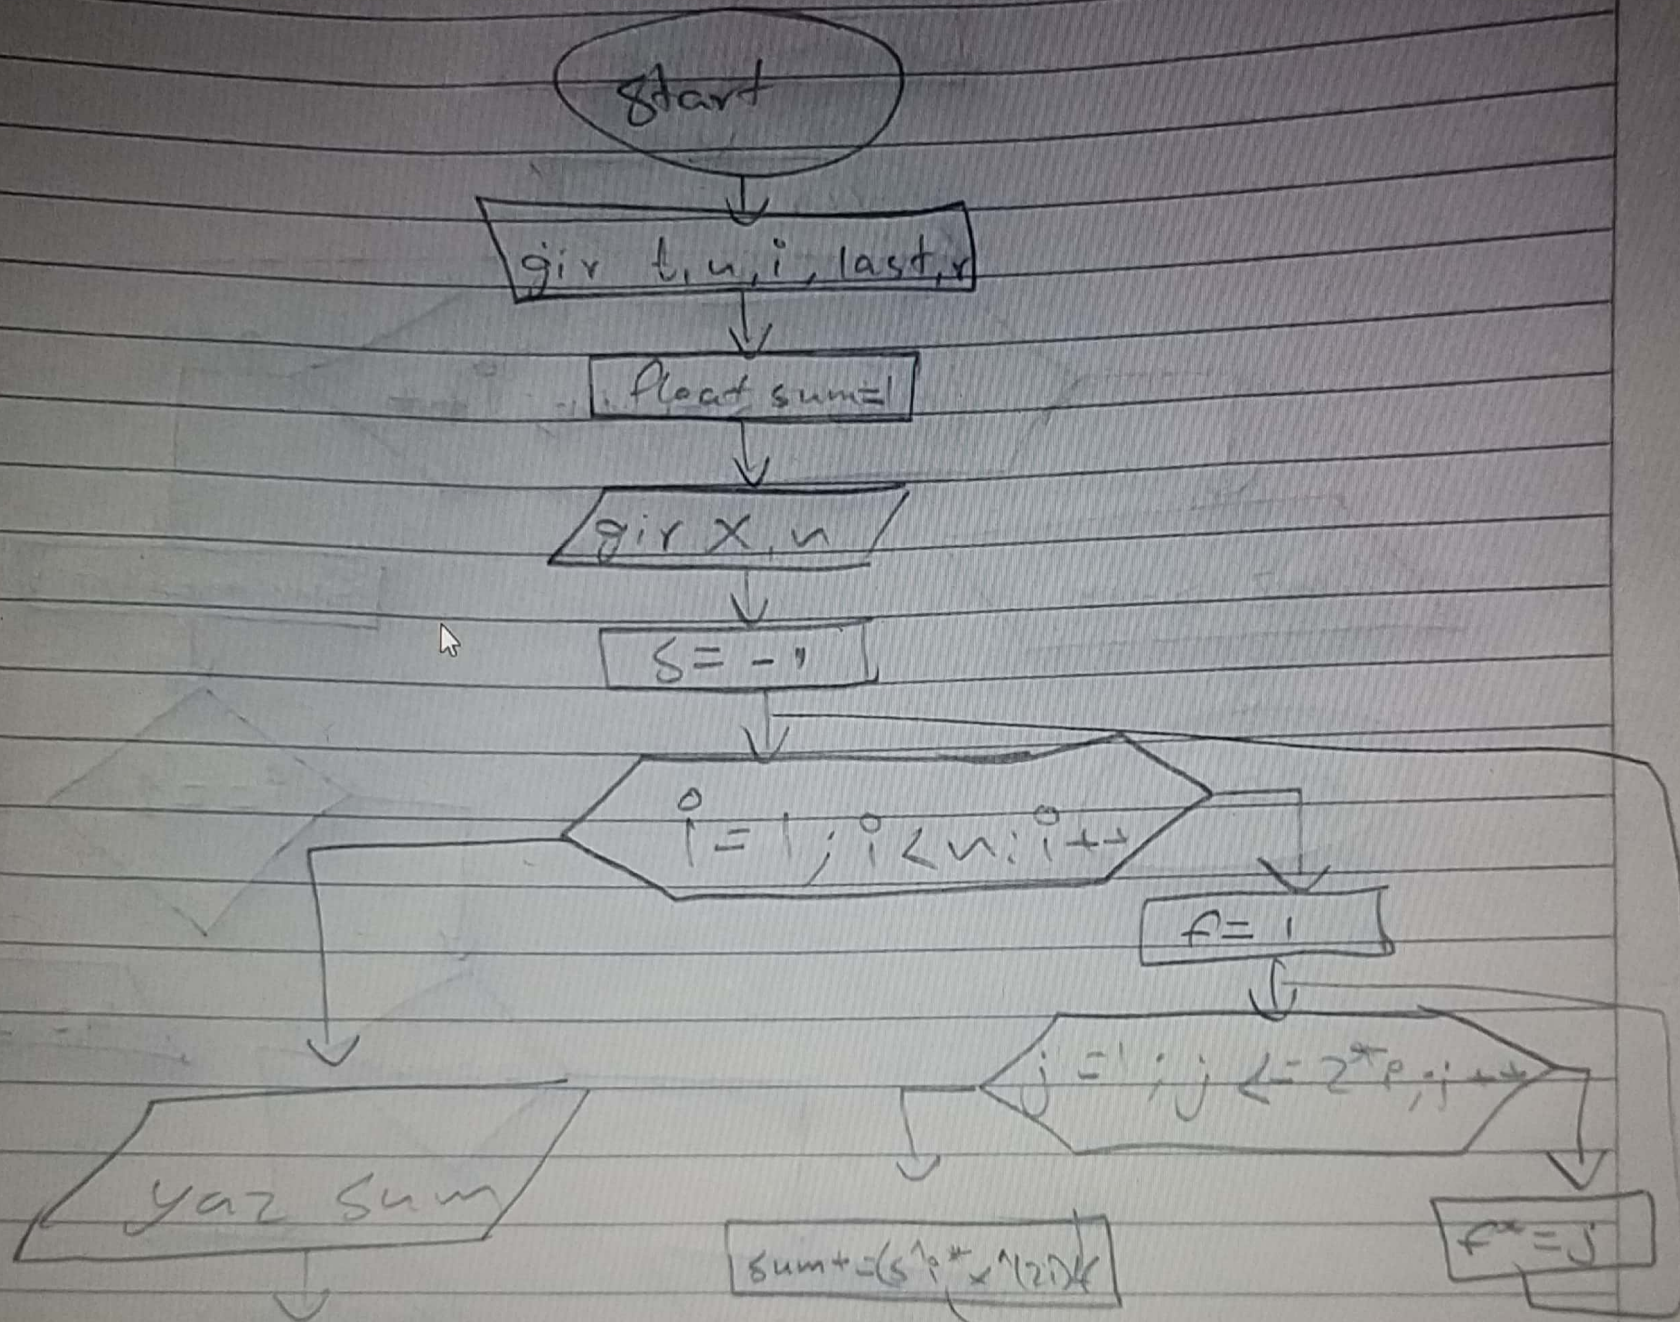 start
gir t, n, i, last, r
float sum=1
gir x, n
s = -1
i = 1; i < n; i++
f = 1
j = 1; j <= 2*i; j++
yaz sum
f* = j
sum+=(s^i*x^(2i))/f